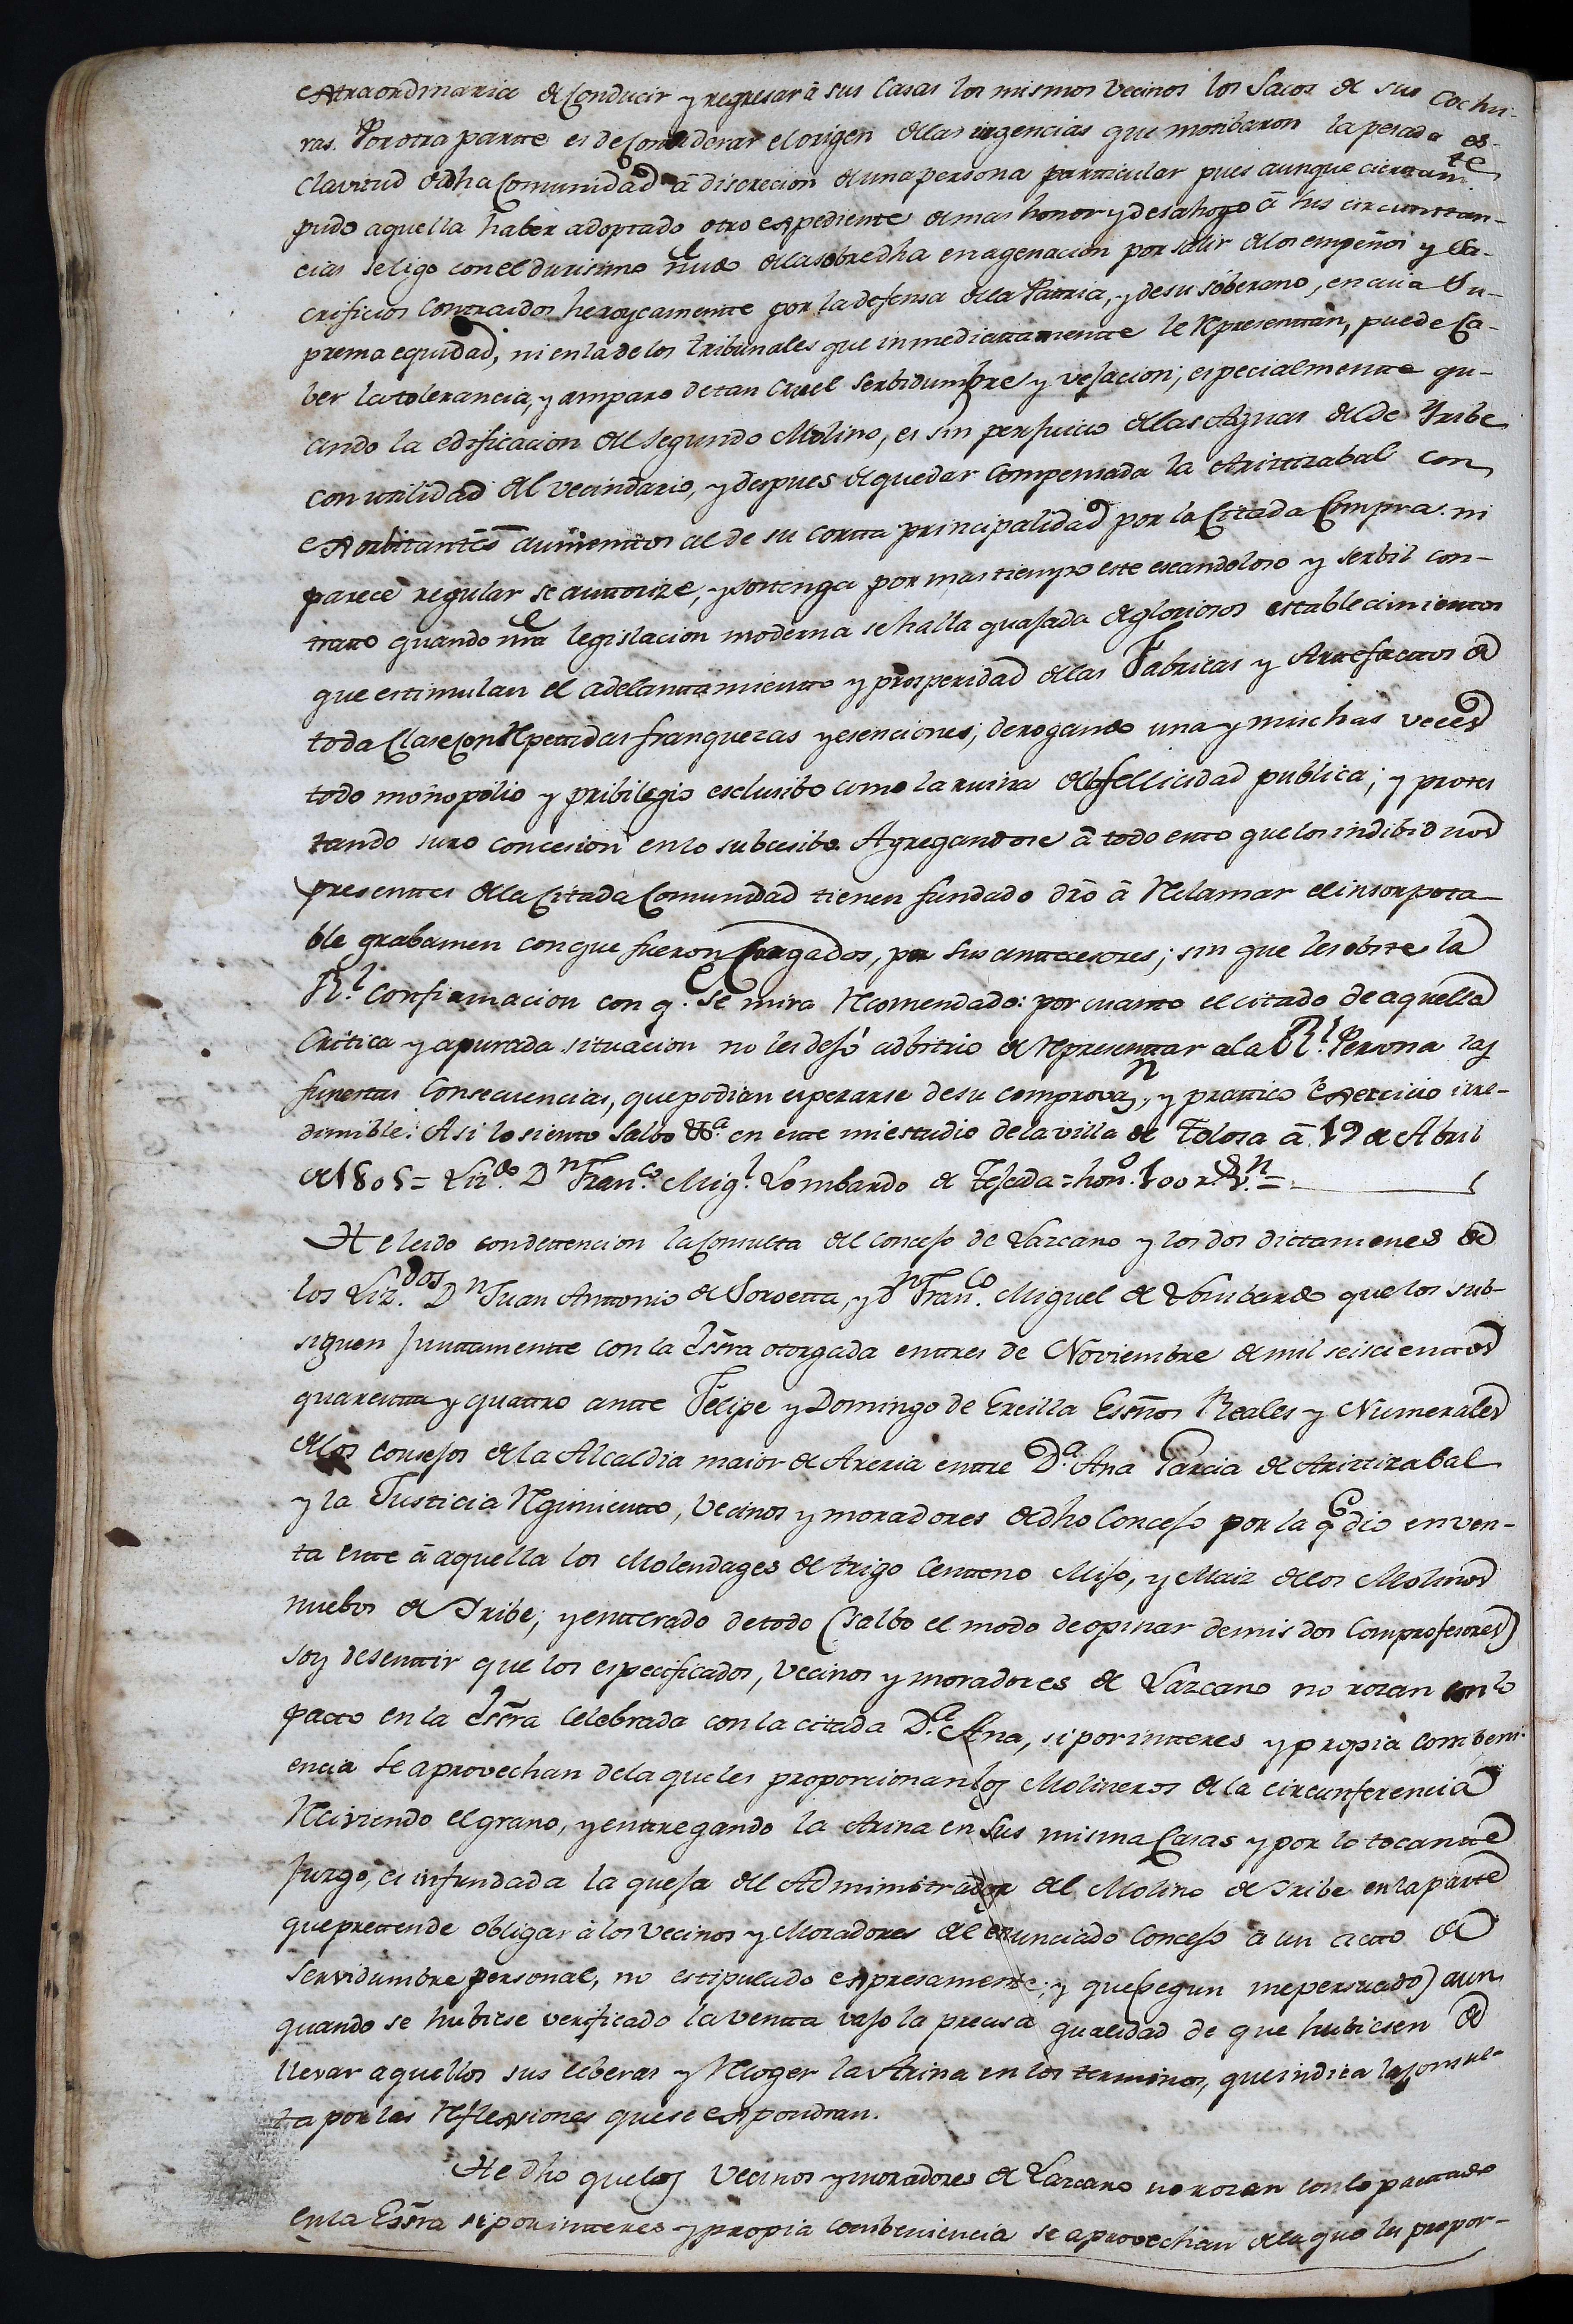 extraordinaria de Conducir y regresar â sus Casas los mismos Vecinos los Sacos de sus Cochu-
ras. Por otra partte es de Considerar el origen de las urgencias que motibaron la pesada es-
clavitud de dha Comunidad â discrecion de una persona particular pues aunque ciertam.te
pudo aquella haber adoptado otro expediente de mas honor y desahogo â sus circunstan-
cias se ligo con el durisimo nudo de la sobredha enagenacion por salir de los empeños y Sa-
crificios Contraidos heroycamentte por la defensa de la Patria, y de su Soberano, en cuia Su-
prema equidad, ni en la de los tribunales que inmediattamentte le Representtan, puede Ca-
ber la tolerancia, y amparo de tan cruel Serbidumbre y vejacion; especialmentte qu-
ando la edificacion del Segundo Molino, es sin perjuicio de las Aguas del de Yribe
con utilidad del vecindario, y despues de quedar Compensada la Arizttizabal con
exorbitantes aumenttos al de su cortta principalidad por la Citada Compra: ni
parece regular se auttorize, y sostenga por mas tiempo este escandoloso y serbil con-
tratto quando nra legislacion moderna se halla quajada de gloriosos establecimientos
que estimulan el adelanttamientto y prosperidad de las Fabricas y Arttefacttos de
toda Clase con Repettidas franquezas y esenciones; derogando una y muchas veces
todo monopolio y pribilegio esclusibo como la ruina de la fellicidad publica; y protes
tando su no concesion en lo subcesibo. Agregandose â todo estto que los indibiduos
presenttes de la Citada Comunidad tienen fundado dro â Reclamar el insorpota
ble grabamen con que fueron Cargados, por sus anttecesores; sin que les obste la
Rl. Confirmacion con q.e se mira Recomendado: por cuanto el estado de aquella
Critica y apurada situacion no les dejó adbitrio de Representtar a la Rl. Persona las
funestas Consecuencias, que podian esperarse de su comprovaz.n, y prattico exercicio irre-
dimible. Asi lo siento Salbo &a. en este mi estudio de la villa de Tolosa â 19 de Abril
de 1805= Liz.do Dn Fran.co Mig.l Lombardo de Tejada = hon.o 100 r.s v.n =
He leido con dettencion la Consulta del Concejo de Lazcano y los dos dictamenes de
los Liz.dos Dn Juan Anttonio de Soroetta, y Dn Fran.co Miguel de Lombardo que los sub-
siguen junttamentte con la Essra otorgada en tres de Noviembre de mil seiscienttos
quarentta y quattro antte Felipe y Domingo de Ercilla Essnos Reales y Numerales
de los Consejos de la Alcaldia maior de Areria enttre Da. Ana Garcia de Arizttizabal
y la Justicia Regimientto, Vecinos y moradores de dho Concejo por la q.e dio en ven-
ta estte â aquella los Molendages de trigo Centteno Mijo, y Maiz de los Molinos
nuebos de Yribe; y entterado de todo (salbo el modo de opinar de mis dos Comprofesores)
soy de senttir que los especificados, Vecinos y moradores de Lazcano no rozan con lo
pacto en la Essra Celebrada con la citada Da. Ana, si por intteres y propia combeni-
encia se aprovechan de la que les proporcionan los Molineros de la circunferencia
Reciviendo el grano, y enttregando la Arina en sus misma Casas y por lo tocantte
juzgo, es infundada la queja del Administrador del Molino de Yribe en la parte
que prettende obligar â los Vecinos y Moradores del enunciado Concejo â un actto de
Servidumbre personal, no estipulado expresamente; y que (segun me persuado) aun
quando se hubiese verificado la ventta vajo la precisa qualidad de que hubiesen de
llevar aquellos sus ceberas y Recoger la Arina en los terminos, que indica la Consul-
ta por las Reflexiones que se expondran.
He dho que los Vecinos y moradores de Lazcano no rozan con lo pacttado
en la Essra si por intteres y propia combeniencia se aprovechan de la que les propor-